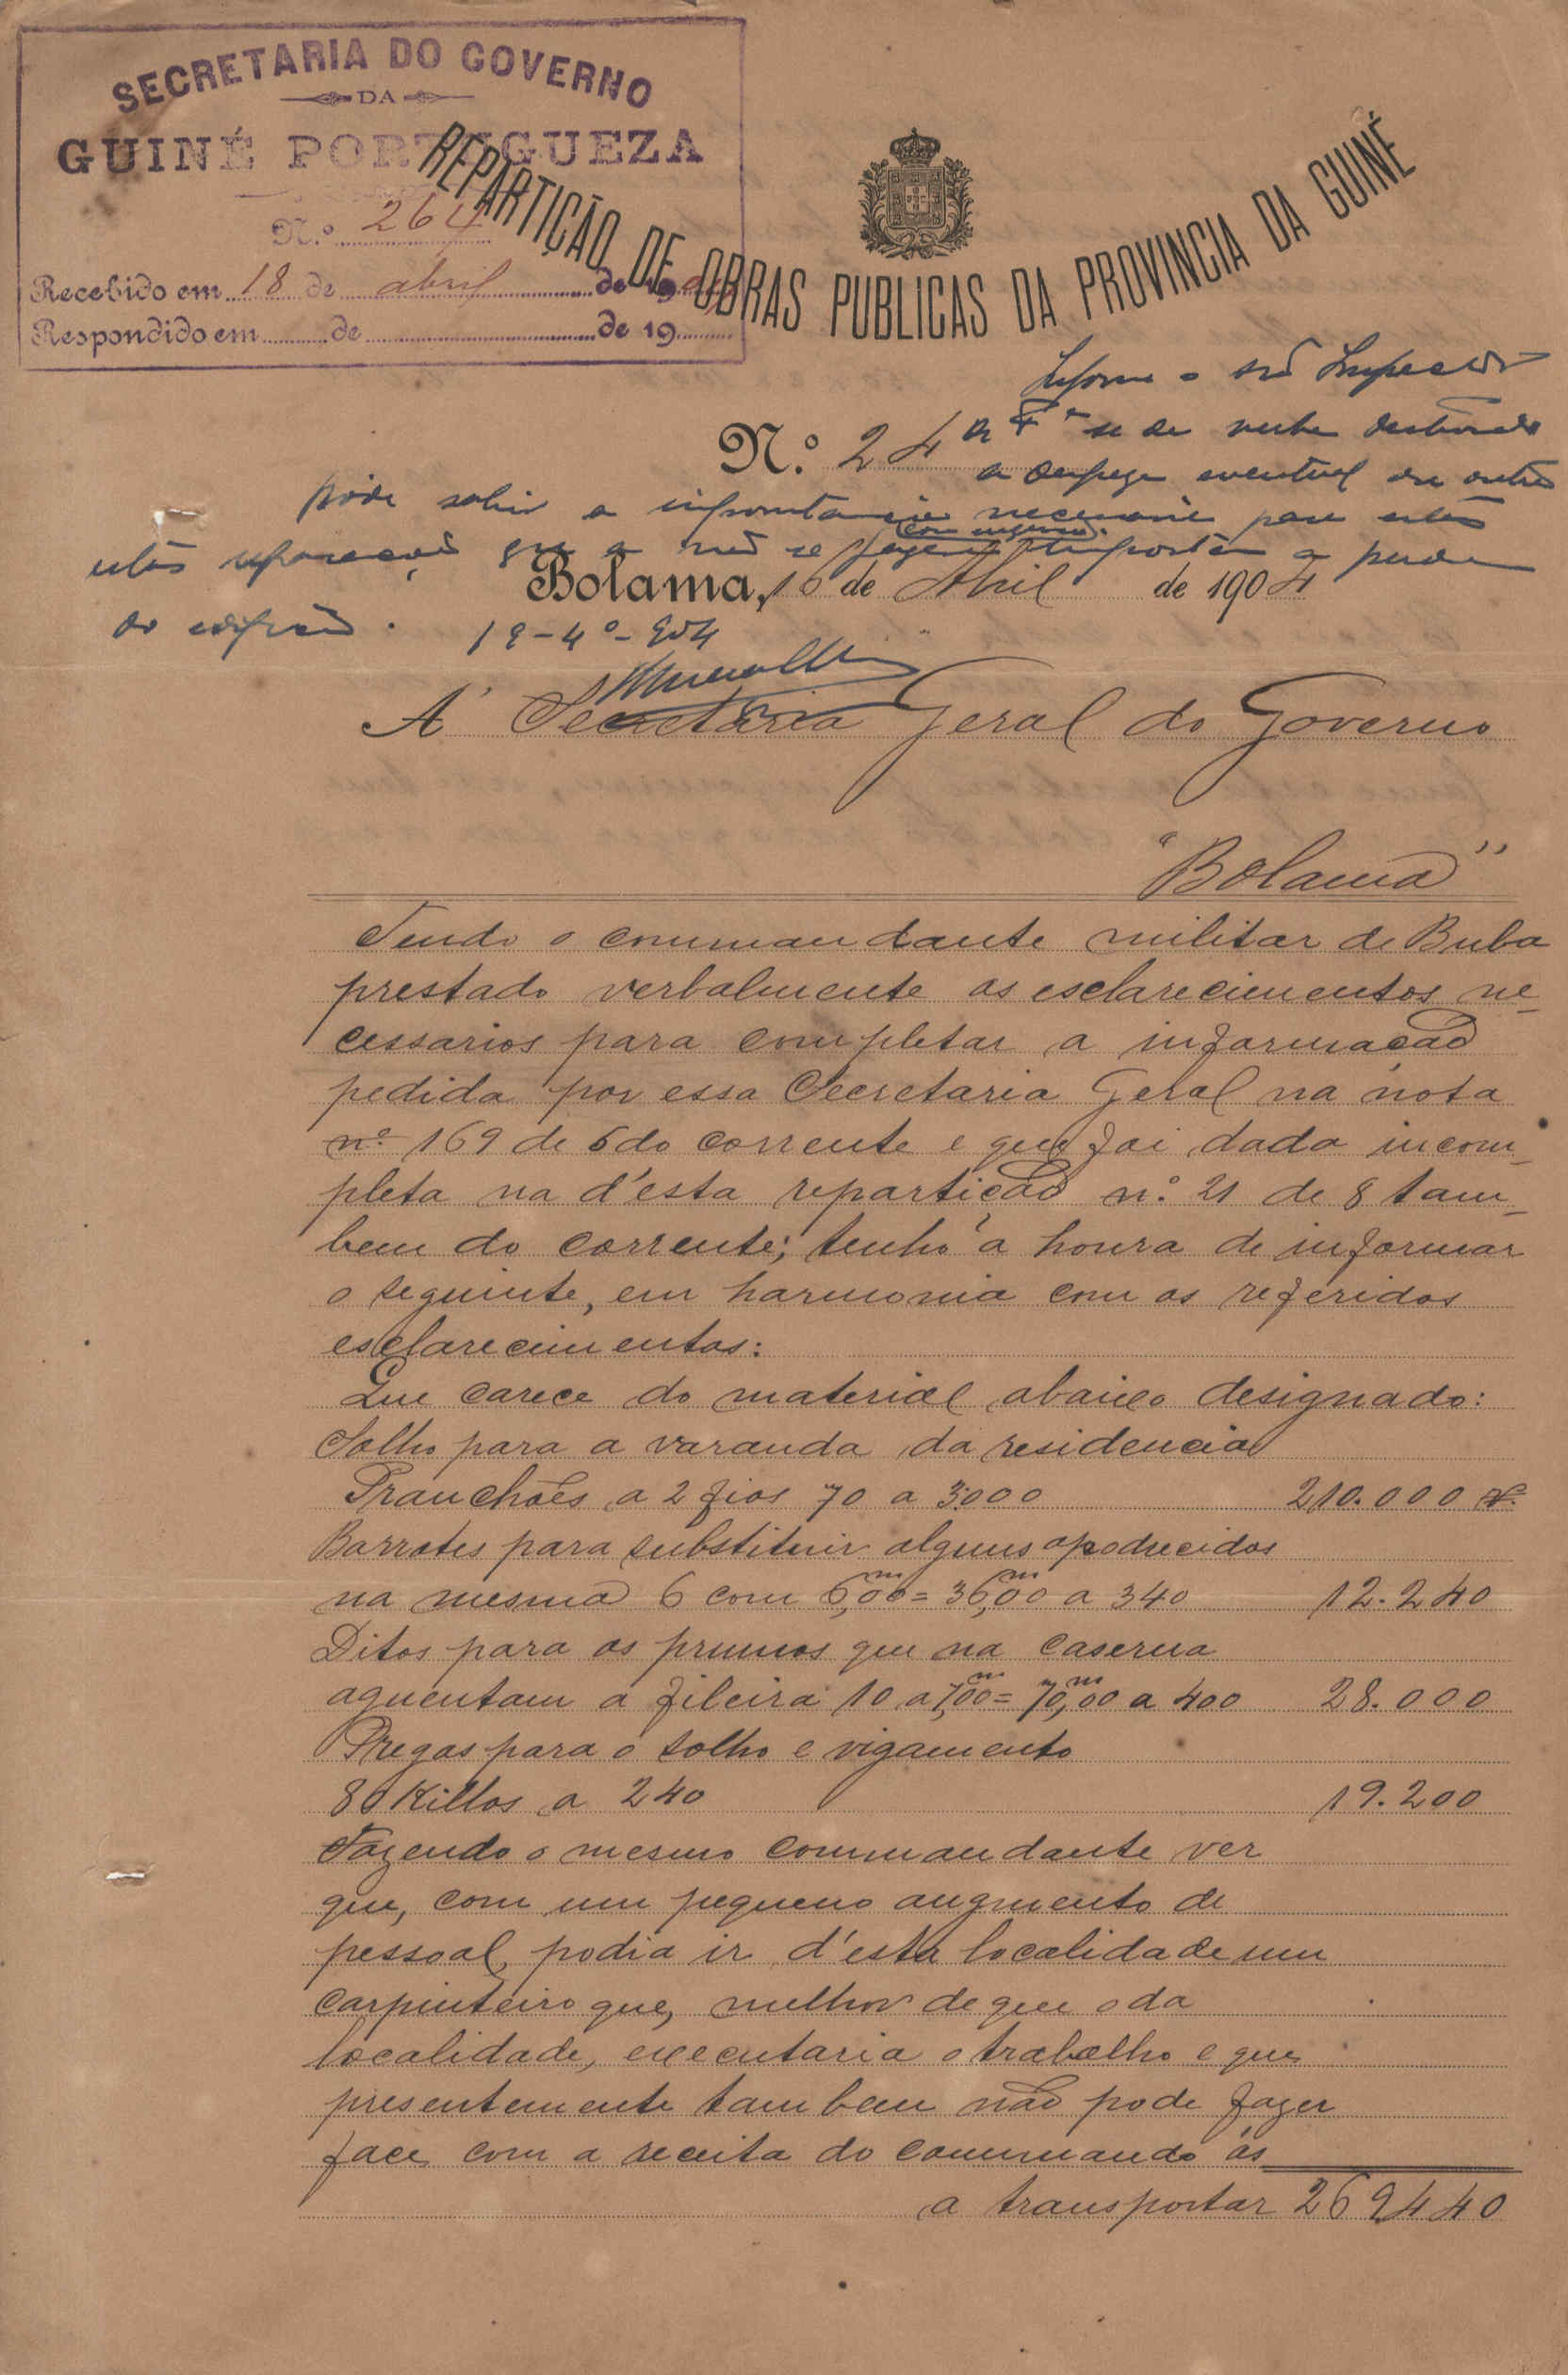 SECRETARIA DO GOVERNO
DA
GUINÉ PORTUGUEZA
N.º 264
Recebido em 18 de abril de 190
Respondido em de de 19
REPARTIÇÃO DE OBRAS PUBLICAS DA PROVINCIA DA GUINÉ
Informe o snr Inspector
de se da verba destinada
N.º 24
a despeza eventual ou outra
póde sahir a importancia necessaria para estas
com urgencia
estas reparações que a não se fazerem importam a perda
Bolama, 16 de Abril de 1904
do edificio.
19-4º-904
A' Secretaria Geral do Governo
"Bolama"
Tendo o commandante militar de Buba
prestado verbalmente os esclarecimentos ne-
cessarios para completar a informação
pedida por essa Secretaria Geral na nota
nº 169 de 5 do corrente e que foi dada incom-
pleta na d'esta repartição n.º 21 de 8 tam-
bem do corrente; tenho a honra de informar
o seguinte, em harmonia com os referidos
esclarecimentos:
Que carece do material abaixo designado:
Solho para a varanda da residencia
Pranchões a 2 fios 70 a 3.000 210.000 rs.
Barrotes para substituir alguns apodrecidos
na mesma 6 com 6,00m = 36,00m a 340 12.240
Ditos para os prumos que na caserna
aguentam a fileira 10 a 7,00m = 70,00m a 400 28.000
Pregos para o solho e vigamento
80 Killos a 240 19.200
Fazendo o mesmo commandante ver
que, com um pequeno augmento de
pessoal, podia ir d'esta localidade um
carpinteiro que, melhor de que o da
localidade, executaria o trabalho e que
presentemente tambem não pode fazer
face com a receita do commando ás
a transportar 269440